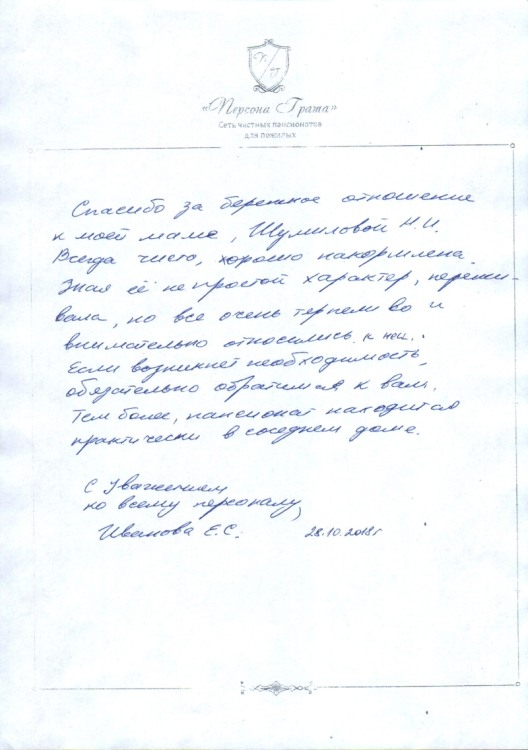 П
Г
«Персона Грата»
Сеть частных пансионатов
для пожилых
Спасибо за бережное отношение
к моей маме, Шумиловой Н.И.
Всегда чисто, хорошо накормлена.
Зная её непростой характер, пережи-
вала, но все очень терпеливо и
внимательно относились к ней.
Если возникнет необходимость,
обязательно обратимся к вам.
Тем более, пансионат находится
практически в соседнем доме.
С уважением
ко всему персоналу,
Иванова Е.С.
28.10.2018г